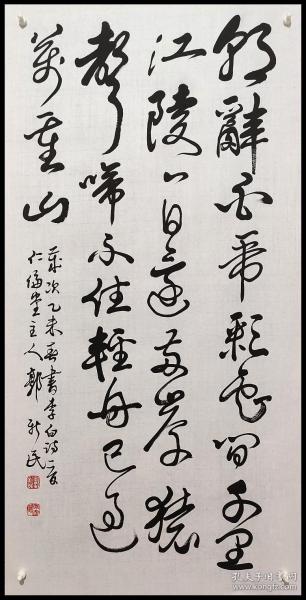 朝辭白帝彩雲間千里
江陵一日還兩岸猿
聲啼不住輕舟已過
萬重山
歲次乙未春書李白詩一首
主人郭新民
孔夫子旧书网